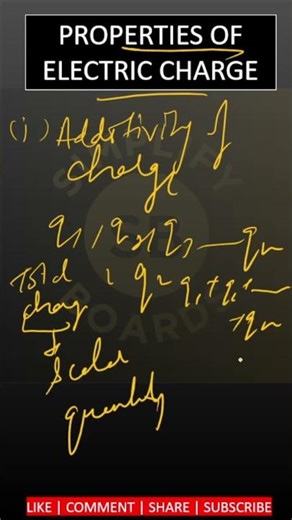 PROPERTIES OF
ELECTRIC CHARGE
(i) Additivity of
charge
q1, q2, q3 — qn
Total , q = q1 + q2 + —
charge + qn
Scalar
quantity
SIMPLIFY
SB
BOARDS
LIKE | COMMENT | SHARE | SUBSCRIBE